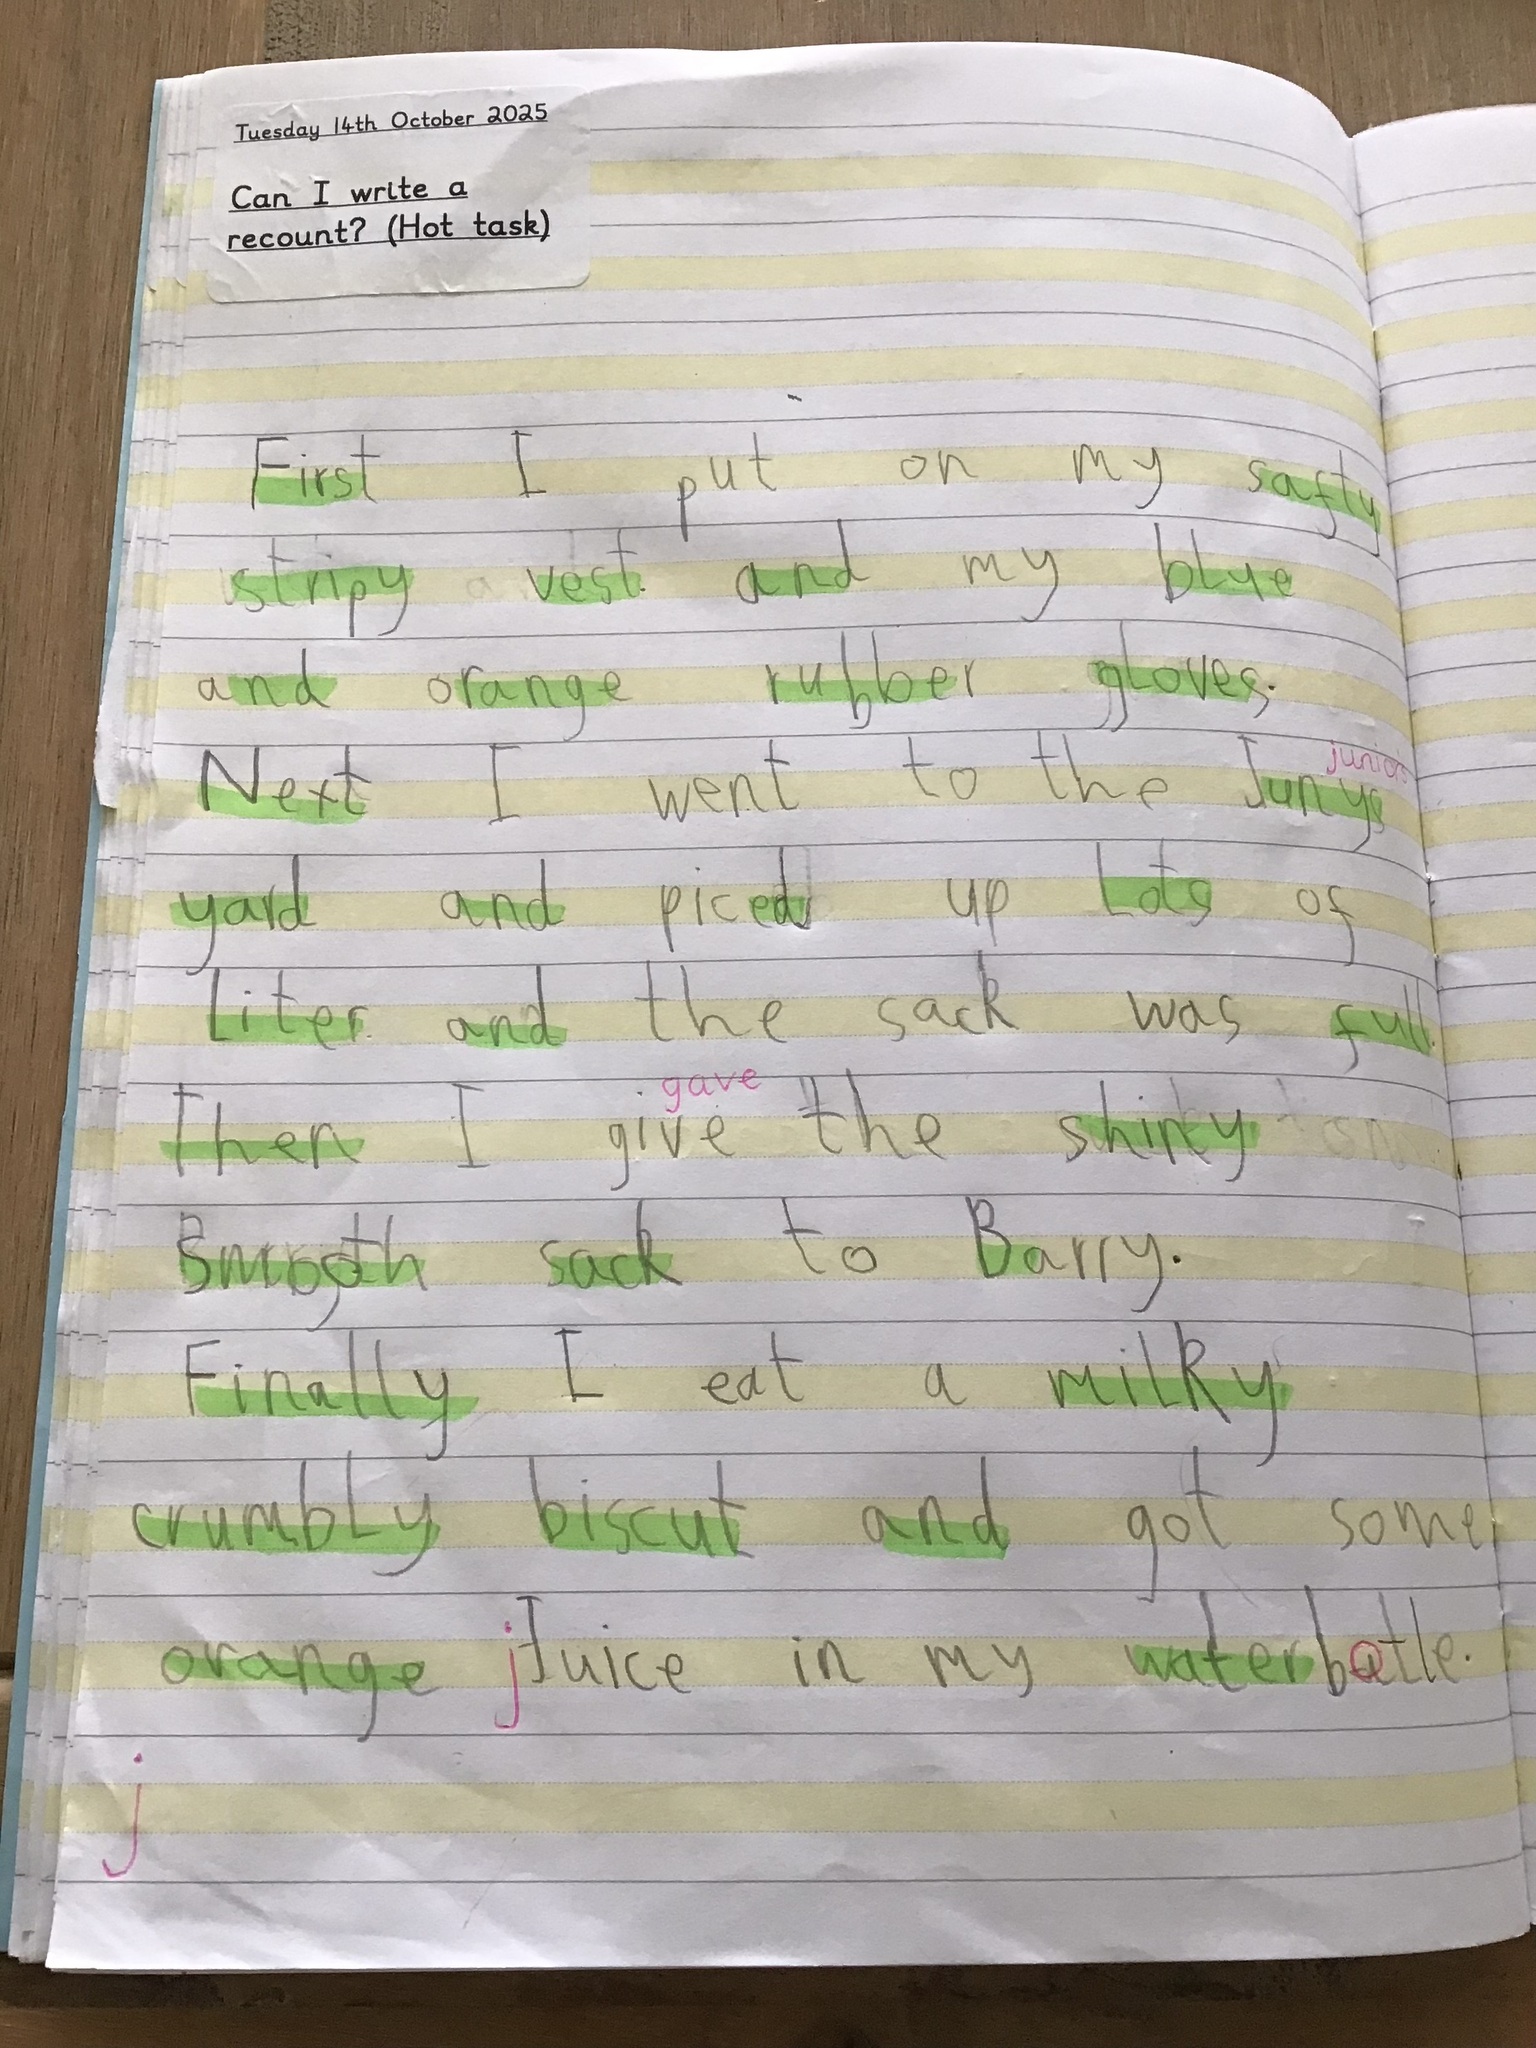 Tuesday 14th October 2025
Can I write a
recount? (Hot task)
First I put on my safty
stripy vest and my blue
and orange rubber gloves.
juniors
Next I went to the Junys
yard and piced up Lots of
Liter and the sack was full.
gave
Then I give the shiny
Smooth sack to Barry.
Finally I eat a milky
crumbly biscut and got some
orange jJuice in my waterbotle.
j